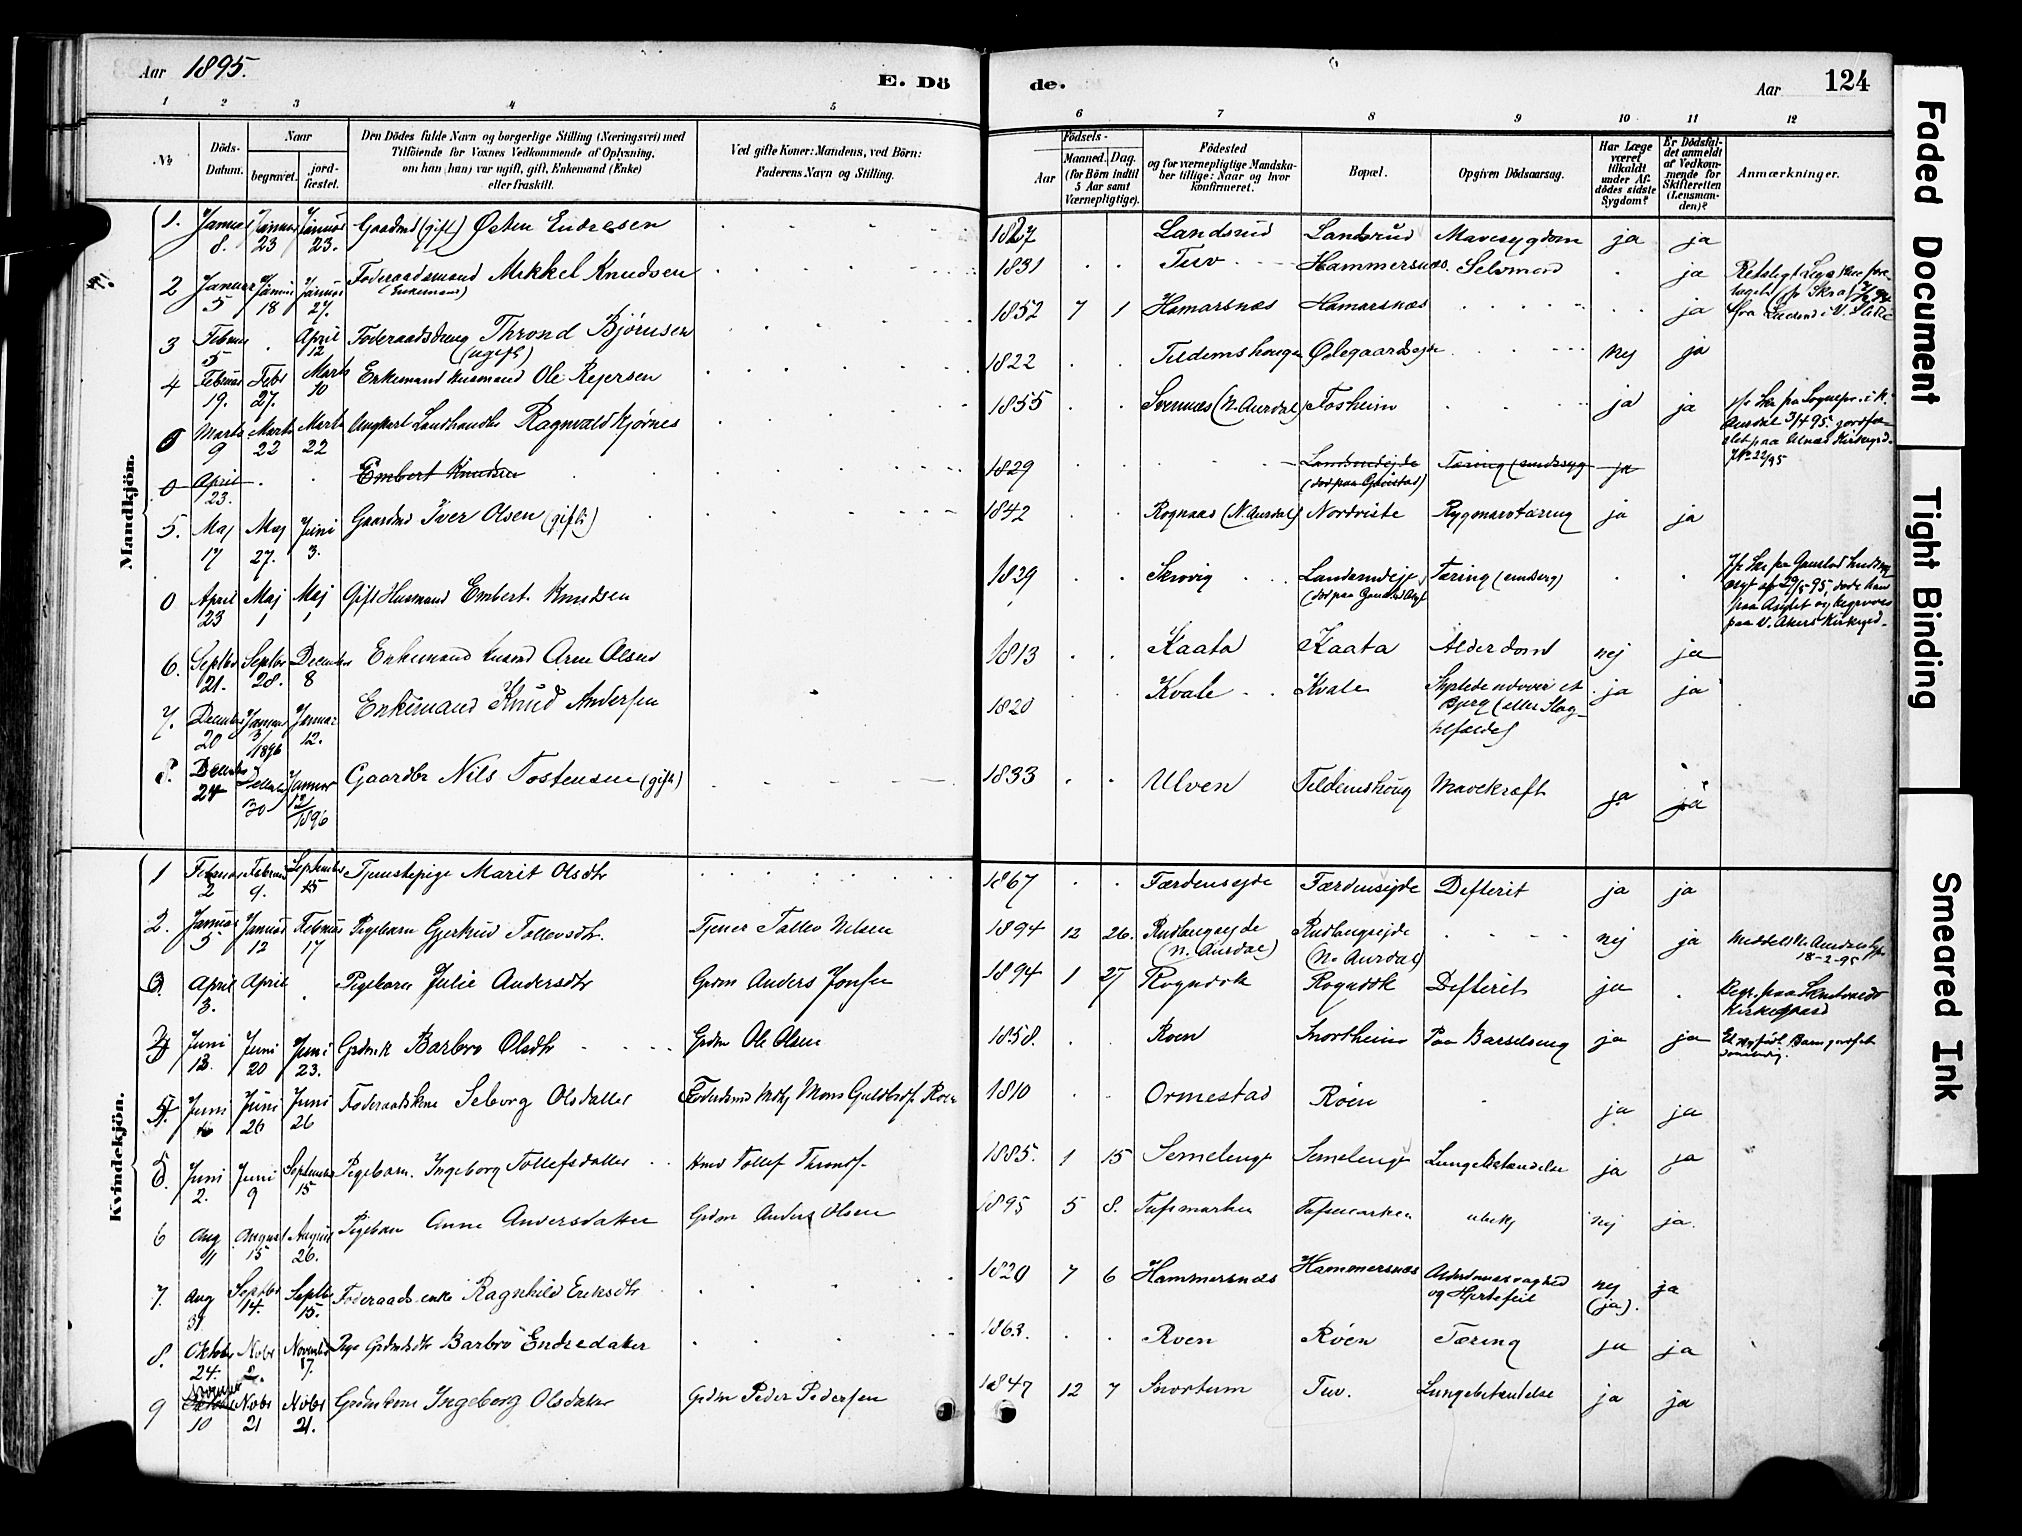 Aar 1895.
E. Dö
de.
Aar
124
1 2 3 4 5 6 7 8 9 10 11 12
№
Döds-
Datum.
Naar
begravet.
jord-
fæstet.
Den Dödes fulde Navn og borgerlige Stilling (Næringsvei) med
Tilföiende for Voxnes Vedkommende af Oplysning,
om han (hun) var ugift, gift, Enkemand (Enke)
eller fraskilt.
Ved gifte Koner: Mandens, ved Börn:
Faderens Navn og Stilling.
Födsels-
Aar
Maaned. Dag.
(for Börn indtil
5 Aar samt
Værnepligtige).
Födested
og for værnepligtige Mandska-
ber tillige: Naar og hvor
konfirmeret.
Bopæl.
Opgiven Dödsaarsag.
Har Læge
været
tilkaldt
under Af-
dödes sidste
Sygdom?
Er Dödsfal-
det anmeldt
af Vedkom-
mende for
Skifteretten
(Lensman-
den)?
Anmærkninger.
Mandkjön.
1. Januar 8. Januar 23 Januar 23. Gaardmd (gift) Østen Endresen 1827 Landsrud Landsrud Mavesygdom ja ja
2 Januar 5 Januar 18 Januar 27. Foderaadsmand Mikkel Knudsen
(Enkemand) 1831 Tuv Hammersnæs Selvmord ja
3 Februar 5 April 12 Foderaadsdreng Thrond Björnsen
(ugift) 1852 7 1 Hamarsnæs Hamarsnæs ja
4 Februar 19. Febr 27. Marts 10 Enkemand Husmand Ole Rejersen 1822 Tildemshougen Ølegaardsejde nej ja
0 Marts 9 Marts 22 Marts 22 Ungkarl Landhandler Ragnvald Kjørnes 1855 Svennæs (N. Aurdal) Fosheim ja ja
0 April 23. Embert Knudsen 1829 Landsendejde Tæring ja
5. Maj 17 Maj 27. Juni 3. Gaardmd Iver Olsen (gift) 1842 Rognaas (N. Aurdal) Nordviste Rygmarvstæring ja ja
0 April 23 Maj 1 Maj 1 Gift Husmand Embert Knudsen 1829 Skrovig Landsendeje Tæring
paa V. Akers Kirkegrd.
6. Septbr 21. Septbr 28. December 8 Enkemand Husmd Arne Olsen 1813 Kaata Kaata Alderdom nej ja
7. December 20 Januar 3/1896 Januar 12. Enkemand Knud Andersen 1820 Kvale Kvale Styrtede udover et
Bjerg (eller Slag-
tilfælde) ja ja
8. December 24 December 30 Januar 12/1896 Gaardbr Nils Tostensen (gift) 1833 Ulven Tildemshoug Mavekræft ja ja
Kvindekjön.
1 Februar 2 Februar 9. September 15 Tjenestepige Marit Olsdtr 1867 Færdensejde Færdensejde Defterit ja ja
2. Januar 5 Januar 12 Februar 17 Pigebarn Gjertrud Tollevsdtr. Tjener Tollev Nilsen 1894 12 26. Rudlangsejde
(N. Aurdal) Rudlangsejde
(N. Aurdal) nej ja 18-2-95
3. April 3. April Pigebarn Julie Andersdtr Grdm Anders Jonsen 1894 1 27 Rogndok Rogndok Defterit ja
Kirkegaard
Juni 13. Juni 20 Juni 23. Grdmk Barbro Olsdtr Grdm Ole Olsen 1858. Roen Snortheim Paa Barselseng ja ja
Juni Juni 26 Juni 26 Foderaadskone Seborg Olsdatter 1810 Ormestad Röen ja ja
5. Juni 2. Juni 9 September 15 Pigebarn Ingeborg Tollefsdatter Hmd Tollef Thronds. 1885. 1 15 Semelenge Semelenge Lungebetændelse ja ja
6 Aug 11 August 15 August 26. Pigebarn Anne Andersdatter Grdm Anders Olsen 1895 5 8. Tufsmarken Tufsmarken ubekj nej ja.
7. Aug 31 Septbr 14. Septbr 15. Foderaadsenke Ragnhild Eriksdtr 1820 7 6 Hammersnæs Hammersnæs Alderdomssvaghed
og Hjertefeil nej
(ja). ja
8. Oktober 24. Nobr 2. November 17. Pige Grdmdsdtr Barbro Endredatter 1863. Roen Röen Tæring ja ja
9 November 10 Nobr 21 Nobr 21. Grdmkone Ingeborg Olsdatter Grdm Peder Pedersen 1847 12 7 Snortum Tuv. Lungebetændelse ja ja
Faded Document
Tight Binding
Smeared Ink